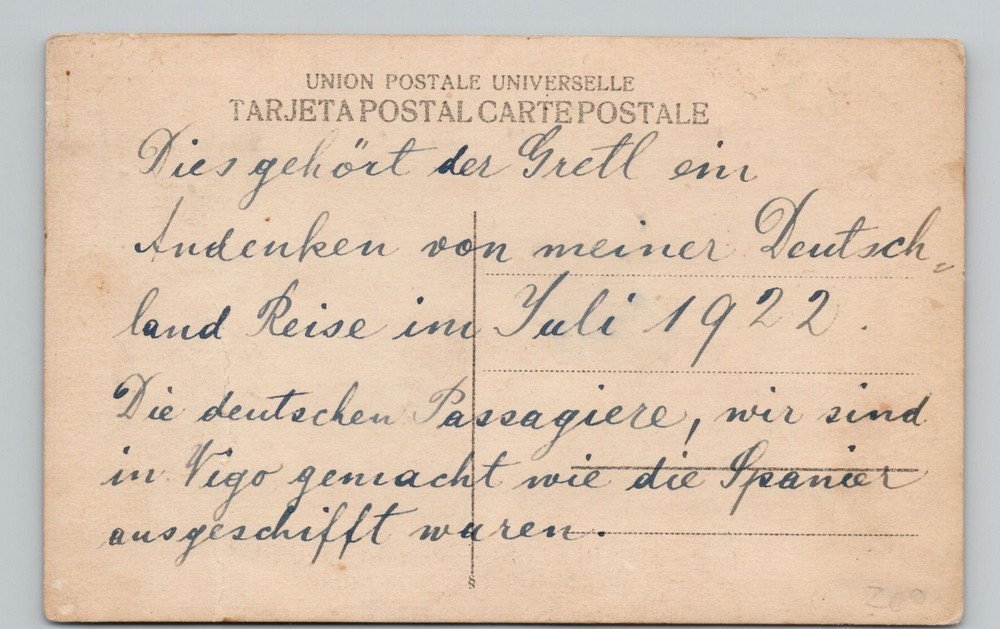 UNION POSTALE UNIVERSELLE
TARJETA POSTAL CARTE POSTALE
Dies gehört der Gretl ein
Andenken von meiner Deutsch=
land Reise im Juli 1922.
Die deutschen Passagiere, wir sind
in Vigo gemacht wie die Spanier
ausgeschifft waren.